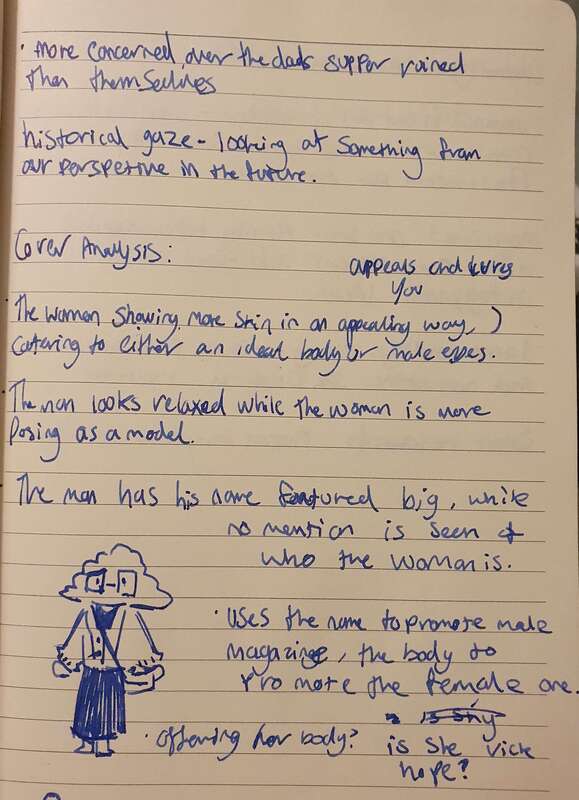 · more concerned over the dads supper ruined
then themselves
historical gaze - looking at something from
our perspective in the future.
Cover Analysis:
appeals and lures
You
The women showing more skin in an appealing way,
catering to either an ideal body or male eyes.
The man looks relaxed while the woman is more
posing as a model.
The man has his name featured big, while
no mention is seen of
who the woman is.
· Uses the name to promote male
magazine, the body to
promote the female one.
· offering her body?
is she
hope?